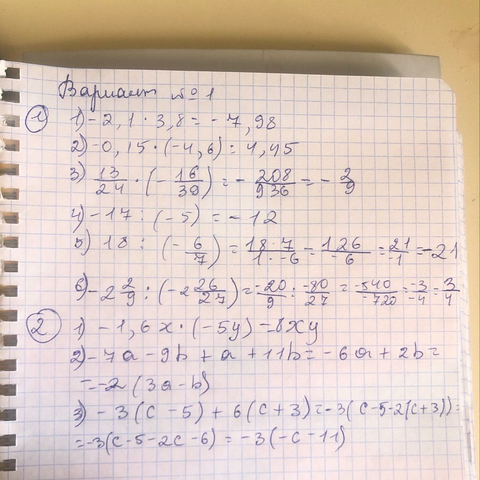 Вариант № 1
① 1) -2,1 · 3,8 = -7,98
2) -0,15 · (-4,6) = 4,45
3) 13/24 · (-16/39) = -208/936 = -2/9
4) -17 : (-5) = -12
5) 18 : (-6/7) = 18·7/1·-6 = 126/-6 = 21/-1 = -21
6) -2 2/9 : (-2 26/27) = -20/9 : -80/27 = -540/-720 = -3/-4 = 3/4
② 1) -1,6x · (-5y) = 8xy
2) -7a - 9b + a + 11b = -6a + 2b =
= -2 (3a - b)
3) -3(c - 5) + 6(c + 3) = -3(c - 5 - 2(c + 3)) =
= -3(c - 5 - 2c - 6) = -3(-c - 11)